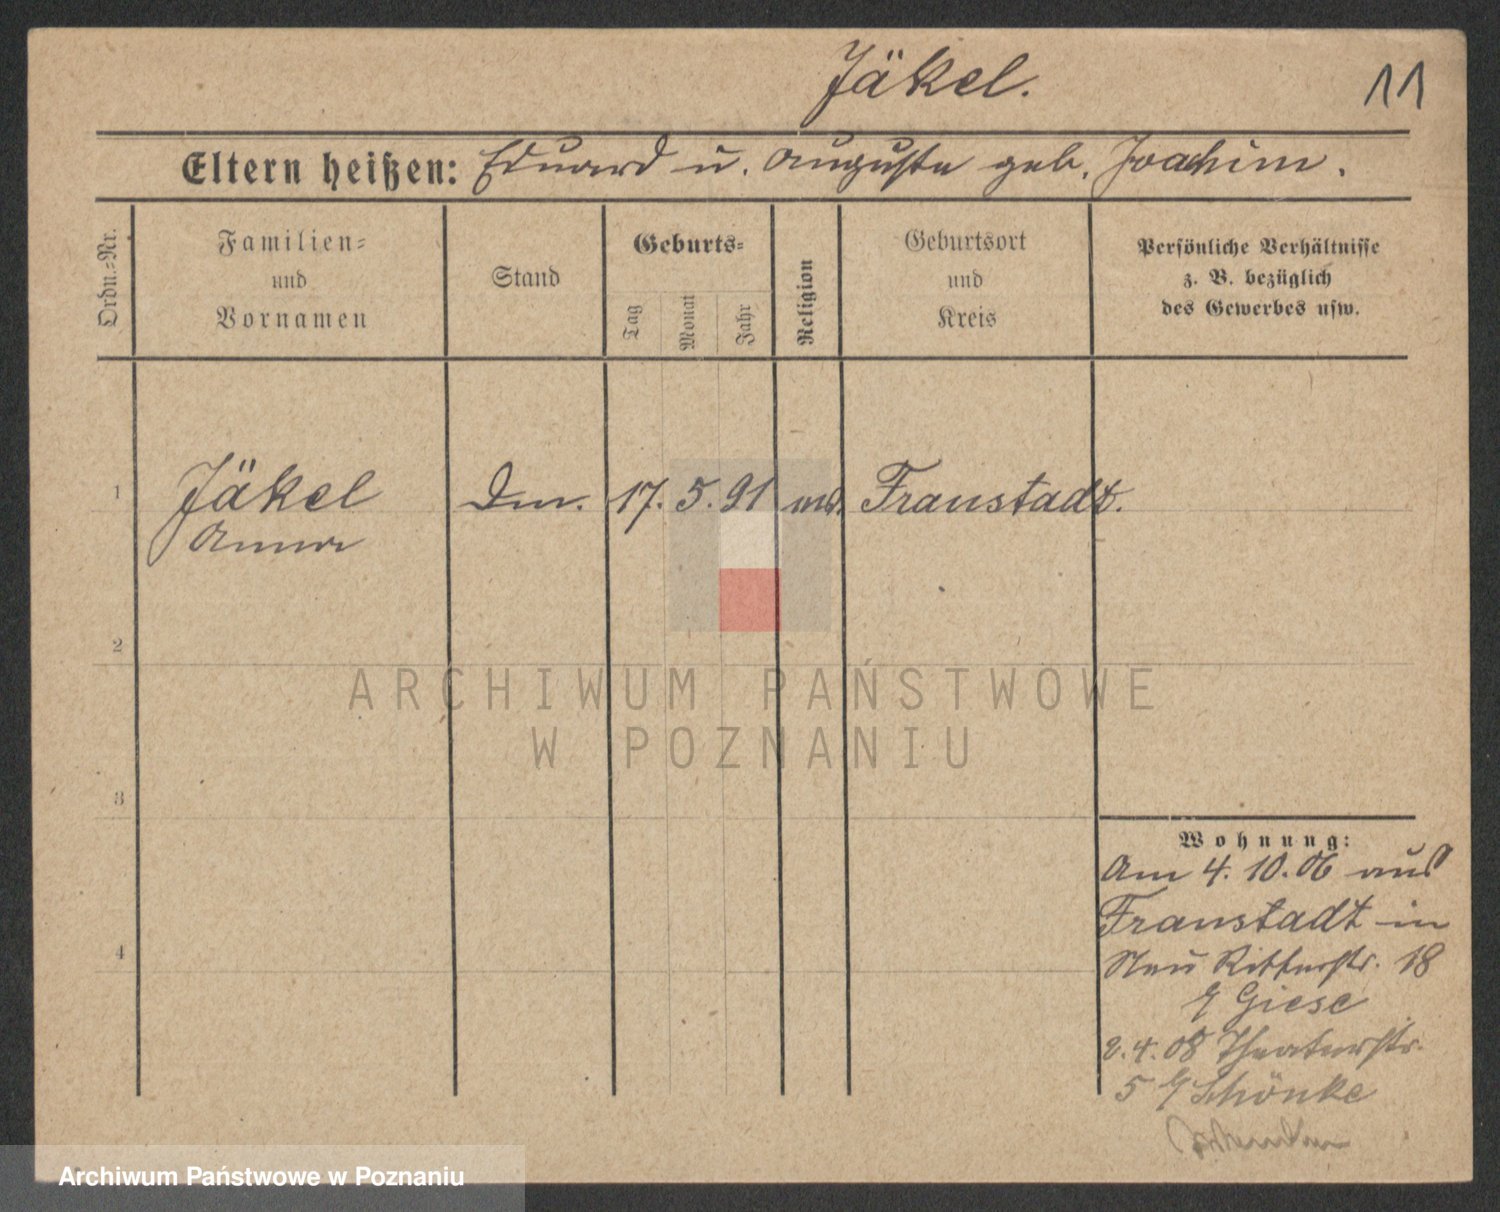 Jäkel.
11
Eltern heißen: Eduard u. Auguste geb. Joachim.
Ordn.-Nr.
Familien-
und
Vornamen
Stand
Geburts-
Tag
Monat
Jahr
Religion
Geburtsort
und
Kreis
Persönliche Verhältnisse
z. B. bezüglich
des Gewerbes usw.
1
Jäkel
Anna
17. 5. 91
Fraustadt.
2
ARCHIWUM PAŃSTWOWE
W POZNANIU
3
Wohnung:
Am 4. 10. 06 aus
Fraustadt in
Ritterstr. 18
Giese
2. 4. 08 Theaterstr.
5 Schönke
4
Archiwum Państwowe w Poznaniu